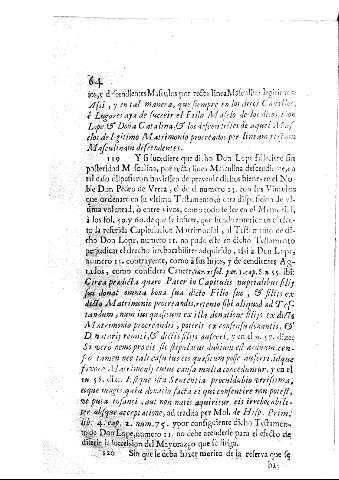 64
ios, y descendientes Masculos por recta linea Masculina legitimos
Assi, y en tal manera, que siempre en los ditos Castillos,
è Lugares aya de succeir el Fillo Masclo de los ditos Don
Lope, & Doña Catalina, & los descendientes de aquel Mas
clos de legitimo Matrimonio procreados per lineam rectam
Masculinam descendentes.
119 Y si sucediere que dicho Don Lope falleciere sin
posteridad Masculina, por recta linea Masculina descendiente, en
tal caso dispusieron huviessen de pervenir dichos bienes en el No-
ble Don Pedro de Vrrea, el del numero 23. con los Vinculos
que ordenare en su vltimo Testamento, ò otra disposicion de vl-
tima voluntad, ò entre vivos, como todo se lee en el Memorial,
à los fol. 59. y 60. de que se infiere, que siendo hecha en el efec-
to la referida Capitulacion Matrimonial, el Testamento de di-
cho Don Lope, numero 11. no pude este en dicho Testamento
perjudicar el derecho irrebocable adquirido, assi à Don Lope,
numero 13. contrayente, como à sus hijos, y descendientes Ag-
nados, como considera Cancer, var. resol. par. 1. cap. 8. n. 55. ibi:
Circa prædicta quæro Pater in Capitulis nuptialibus fili
sui donat omnia bona sua dicto Filio suo, & filiis ex
dicto Matrimonio procreandis, retento sibi aliquod ad Tes-
tandum, num ius quæsitum ex illa donatione filiis ex dicto
Matrimonio procreandis, poterit ex consensu donantis, &
Donatarij remiti, & dictis filiis auferri, y en el n. 57. dize:
Si vero nemo præcis sit stipulatus dubium est arduum cen-
so tamen nec tali casu tus eis quæsitum posse auferri, idque
favore Matrimonij cuius causa multa conceduntur, y en el
n. 58. dize: Estque ista Sententia proculdubio verissima,
eoque magis quia donatio facta ei qui consentire non potest,
ut puta infanti, aut non natis aquiritur eis irrebocabili-
ter absque acceptatione, ad tradita per Mol. de Hisp. Prim.
lib. 4. cap. 2. num. 75. y por consiguiente dicho Testamen-
to de Don Lope, numero 11. no debe atenderse para el efecto de
diferir la succession del Mayorazgo que se litiga.
120 Sin que le deba hacer merito de la reserva que se